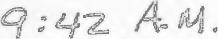 9:42 A.M.